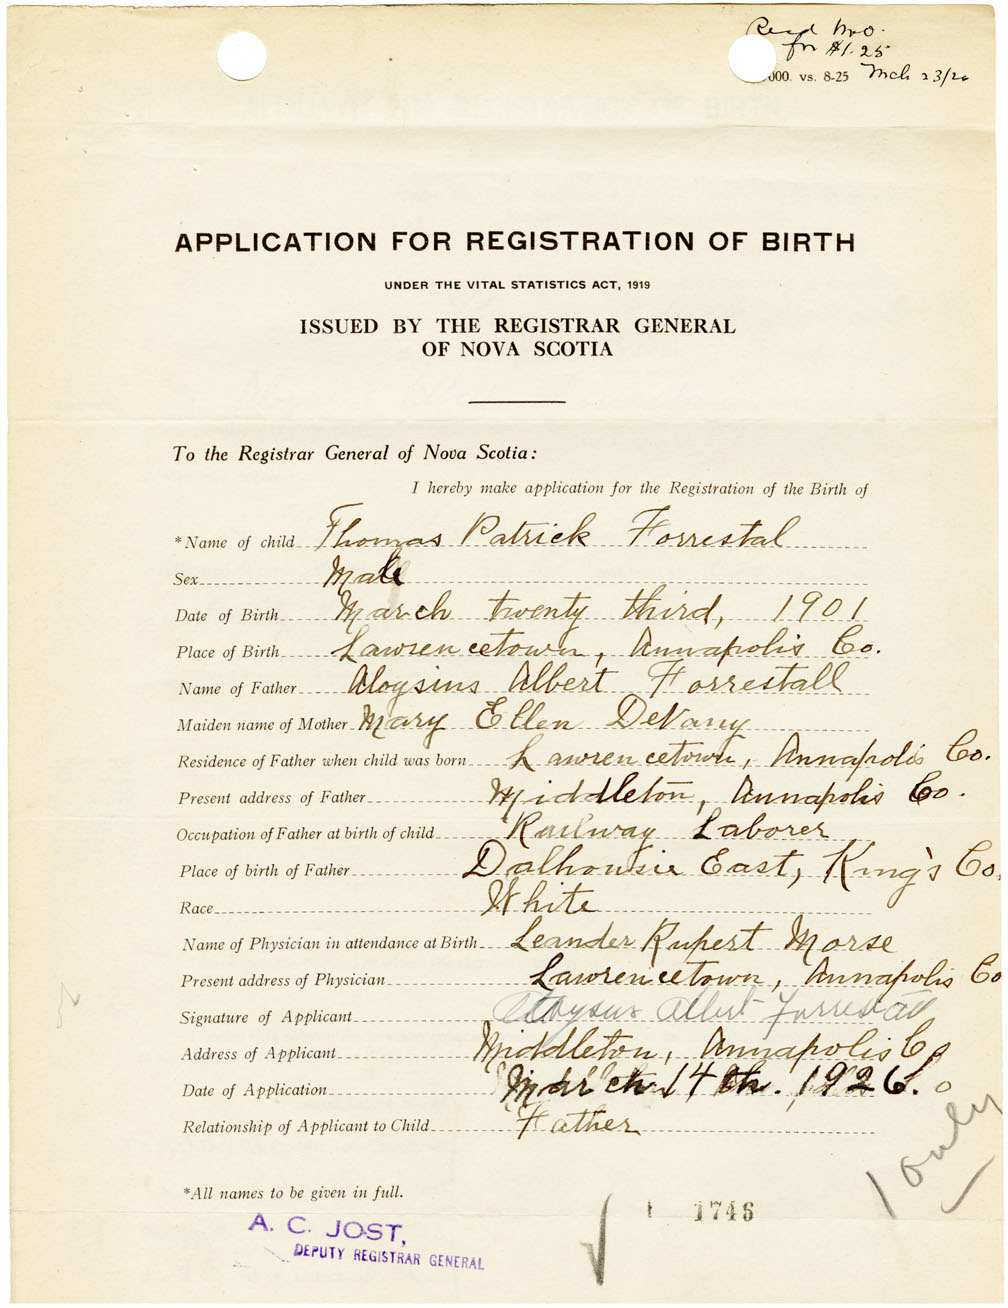 Recd M.O.
for $1.25
000. vs. 8-25 Mch 23/26
APPLICATION FOR REGISTRATION OF BIRTH
UNDER THE VITAL STATISTICS ACT, 1919
ISSUED BY THE REGISTRAR GENERAL
OF NOVA SCOTIA
To the Registrar General of Nova Scotia:
I hereby make application for the Registration of the Birth of
*Name of child Thomas Patrick Forrestal
Sex Male
Date of Birth March twenty third, 1901
Place of Birth Lawrencetown, Annapolis Co.
Name of Father Aloysius Albert Forrestall
Maiden name of Mother Mary Ellen DeVany
Residence of Father when child was born Lawrencetown, Annapolis Co.
Present address of Father Middleton, Annapolis Co.
Occupation of Father at birth of child Railway Laborer
Place of birth of Father Dalhousie East, King's Co.
Race White
Name of Physician in attendance at Birth Leander Rupert Morse
Present address of Physician Lawrencetown, Annapolis Co
Signature of Applicant Aloysus Albert Forrestall
Address of Applicant Middleton, Annapolis Co
Date of Application March 14th. 1926.
Relationship of Applicant to Child Father
1 only
*All names to be given in full.
1746
A. C. JOST,
DEPUTY REGISTRAR GENERAL